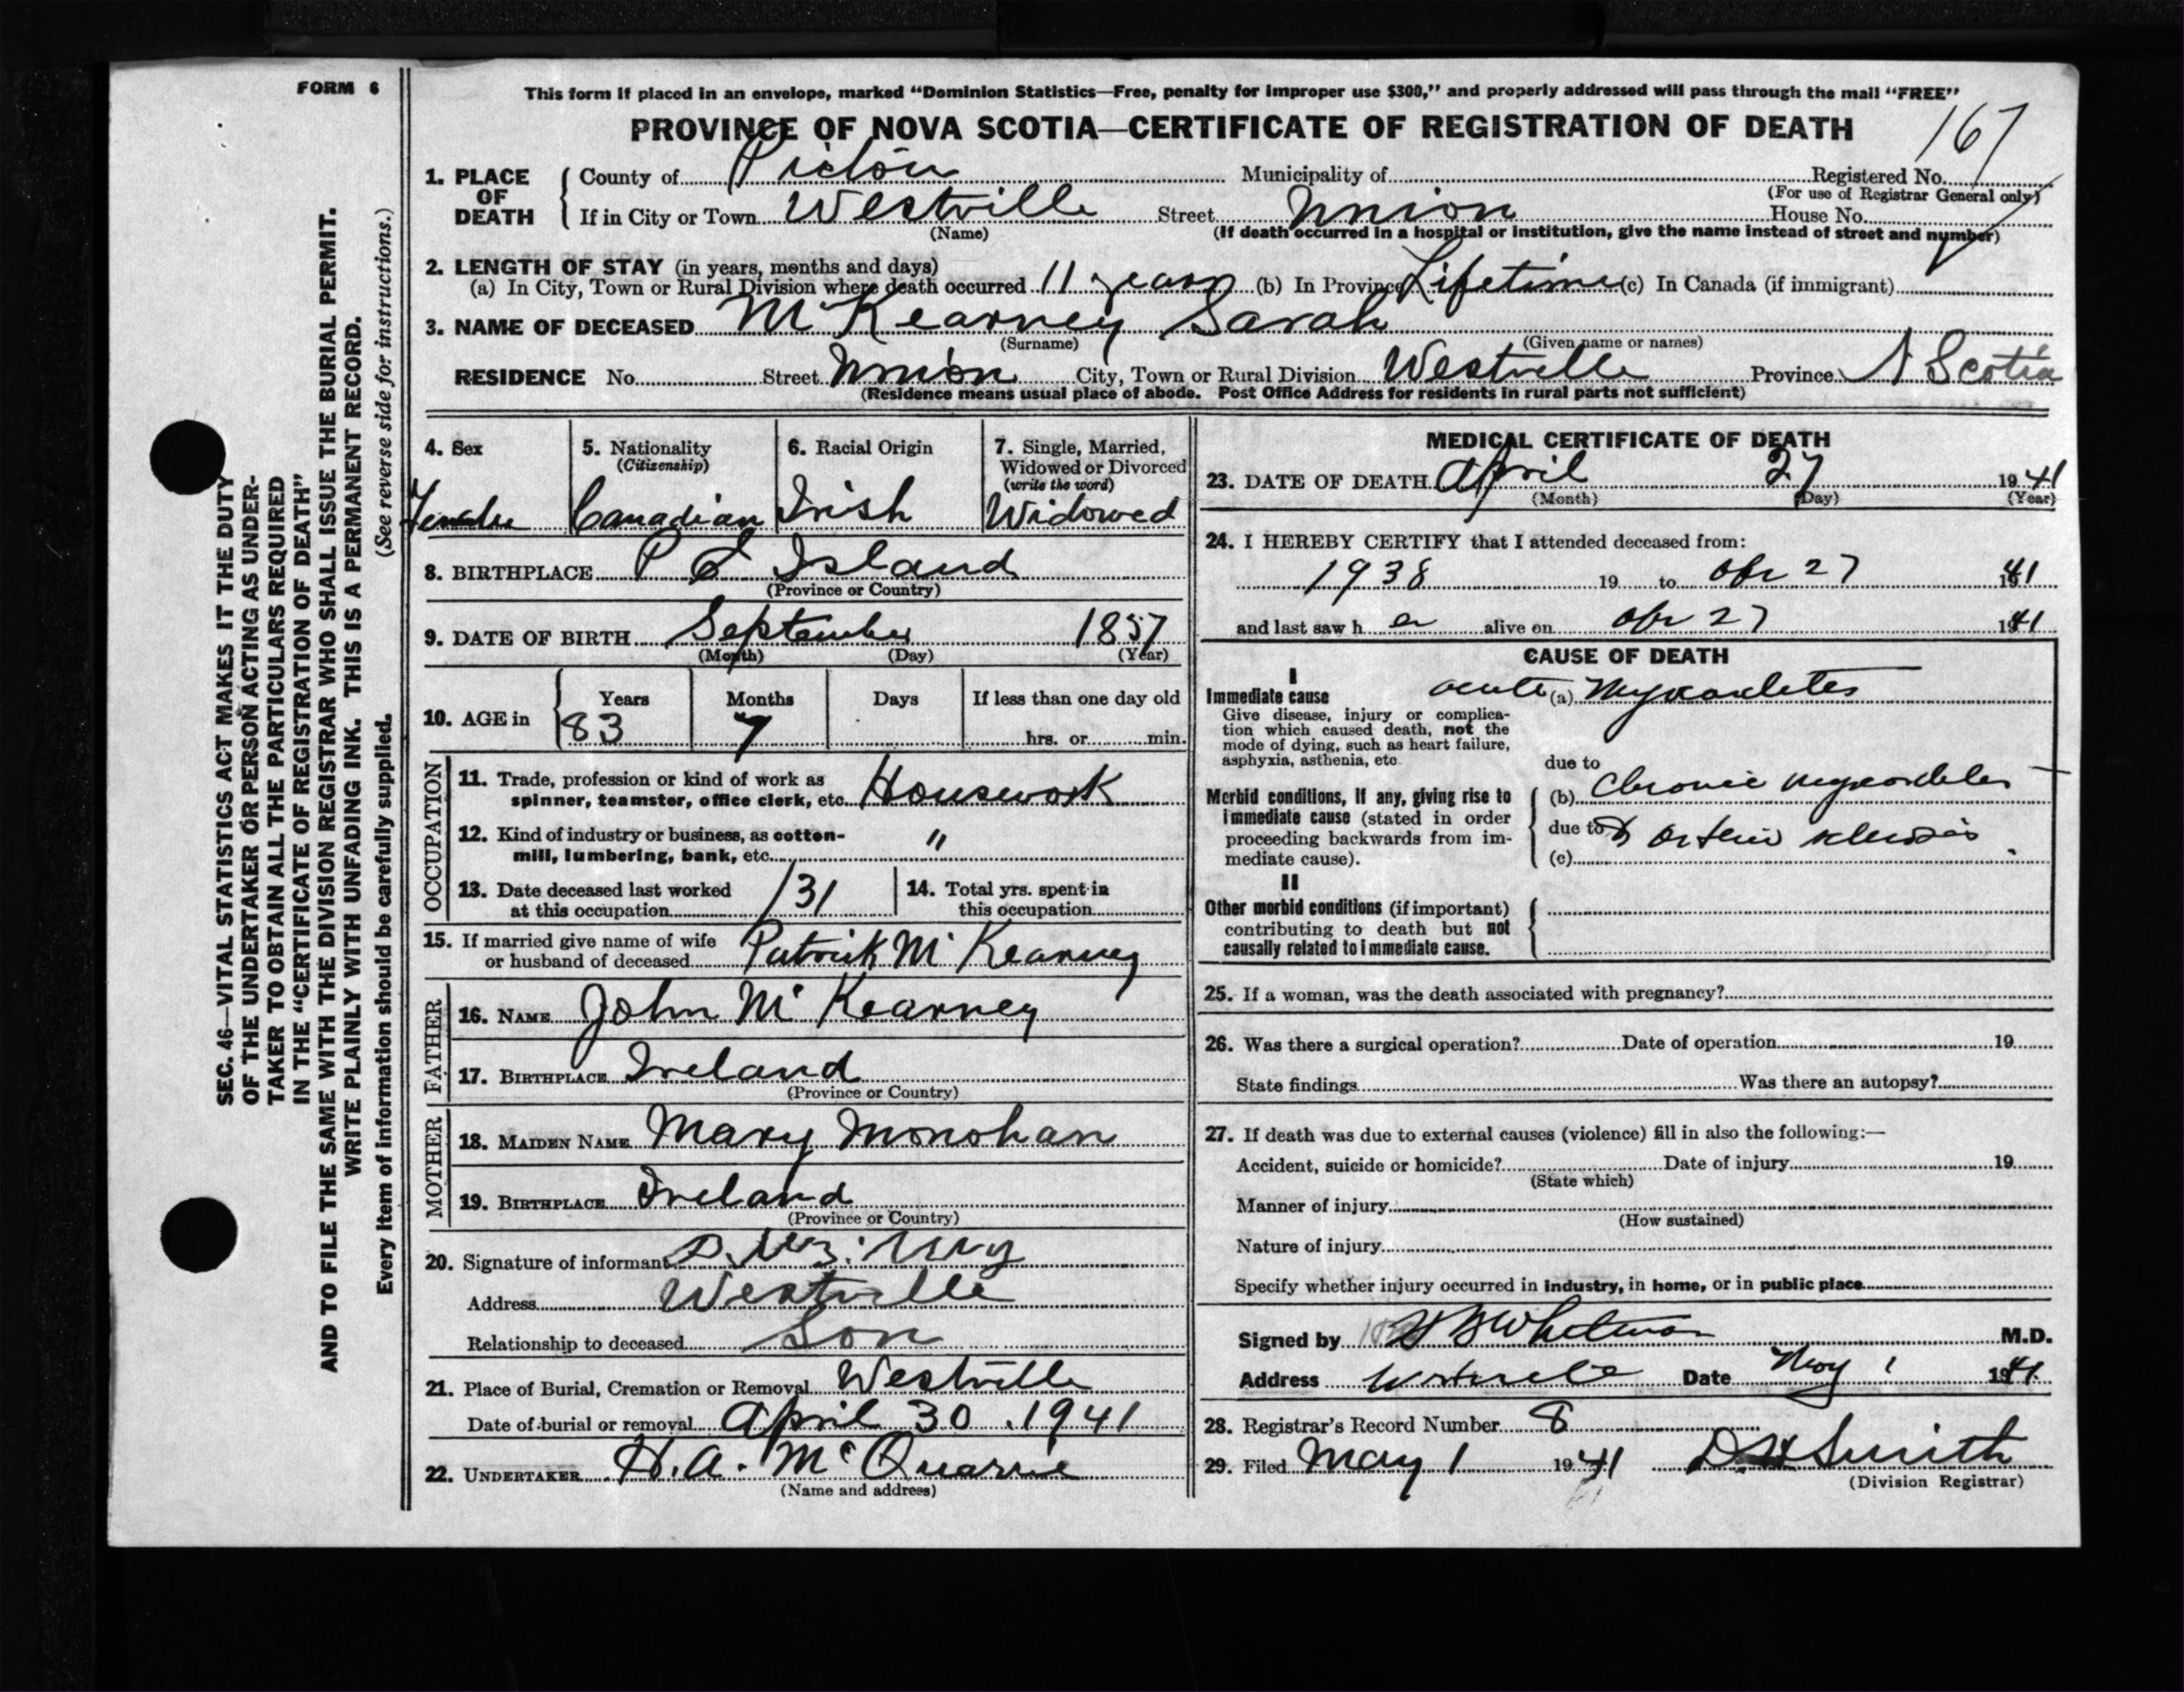 FORM 6
This form if placed in an envelope, marked “Dominion Statistics—Free, penalty for improper use $300,” and properly addressed will pass through the mail “FREE”
PROVINCE OF NOVA SCOTIA—CERTIFICATE OF REGISTRATION OF DEATH
167
1. PLACE OF DEATH
County of Pictou Municipality of Registered No.
(For use of Registrar General only)
If in City or Town Westville Street Union House No.
(Name) (If death occurred in a hospital or institution, give the name instead of street and number)
2. LENGTH OF STAY (in years, months and days)
(a) In City, Town or Rural Division where death occurred 11 years (b) In Province Lifetime (c) In Canada (if immigrant)
3. NAME OF DECEASED McKearney Sarah
(Surname) (Given name or names)
RESIDENCE No. Street Union City, Town or Rural Division Westville Province N Scotia
(Residence means usual place of abode. Post Office Address for residents in rural parts not sufficient)
4. Sex
Female
5. Nationality
(Citizenship)
Canadian
6. Racial Origin
Irish
7. Single, Married,
Widowed or Divorced
(write the word)
Widowed
8. BIRTHPLACE P E Island
(Province or Country)
9. DATE OF BIRTH September 1857
(Month) (Day) (Year)
10. AGE in
Years Months Days If less than one day old
83 7 hrs. or min.
OCCUPATION
11. Trade, profession or kind of work as
spinner, teamster, office clerk, etc. Housework
12. Kind of industry or business, as cotton-
mill, lumbering, bank, etc. "
13. Date deceased last worked
at this occupation 131
14. Total yrs. spent in
this occupation
15. If married give name of wife
or husband of deceased Patrick McKearney
FATHER
16. NAME John McKearney
17. BIRTHPLACE Ireland
(Province or Country)
MOTHER
18. MAIDEN NAME Mary Monohan
19. BIRTHPLACE Ireland
(Province or Country)
20. Signature of informant
Address Westville
Relationship to deceased Son
21. Place of Burial, Cremation or Removal Westville
Date of burial or removal April 30, 1941
22. UNDERTAKER H.A. McQuarrie
(Name and address)
MEDICAL CERTIFICATE OF DEATH
23. DATE OF DEATH April 27 1941
(Month) (Day) (Year)
24. I HEREBY CERTIFY that I attended deceased from:
1938 19 to Apr 27 1941
and last saw h er alive on Apr 27 1941
CAUSE OF DEATH
I
Immediate cause acute (a) Myocarditis
Give disease, injury or complica-
tion which caused death, not the
mode of dying, such as heart failure,
asphyxia, asthenia, etc.
due to
Morbid conditions, if any, giving rise to
immediate cause (stated in order
proceeding backwards from im-
mediate cause).
(b) Chronic Myocarditis
due to Arterio sclerosis
(c)
II
Other morbid conditions (if important)
contributing to death but not
causally related to immediate cause.
25. If a woman, was the death associated with pregnancy?
26. Was there a surgical operation? Date of operation 19
State findings Was there an autopsy?
27. If death was due to external causes (violence) fill in also the following:—
Accident, suicide or homicide? Date of injury 19
(State which)
Manner of injury
(How sustained)
Nature of injury
Specify whether injury occurred in industry, in home, or in public place
Signed by Whitman M.D.
Address Westville Date May 1 1941
28. Registrar's Record Number 8
29. Filed May 1 1941 D H Smith
(Division Registrar)
SEC. 46—VITAL STATISTICS ACT MAKES IT THE DUTY
OF THE UNDERTAKER OR PERSON ACTING AS UNDER-
TAKER TO OBTAIN ALL THE PARTICULARS REQUIRED
IN THE “CERTIFICATE OF REGISTRATION OF DEATH”
AND TO FILE THE SAME WITH THE DIVISION REGISTRAR WHO SHALL ISSUE THE BURIAL PERMIT.
WRITE PLAINLY WITH UNFADING INK. THIS IS A PERMANENT RECORD.
Every item of information should be carefully supplied. (See reverse side for instructions.)